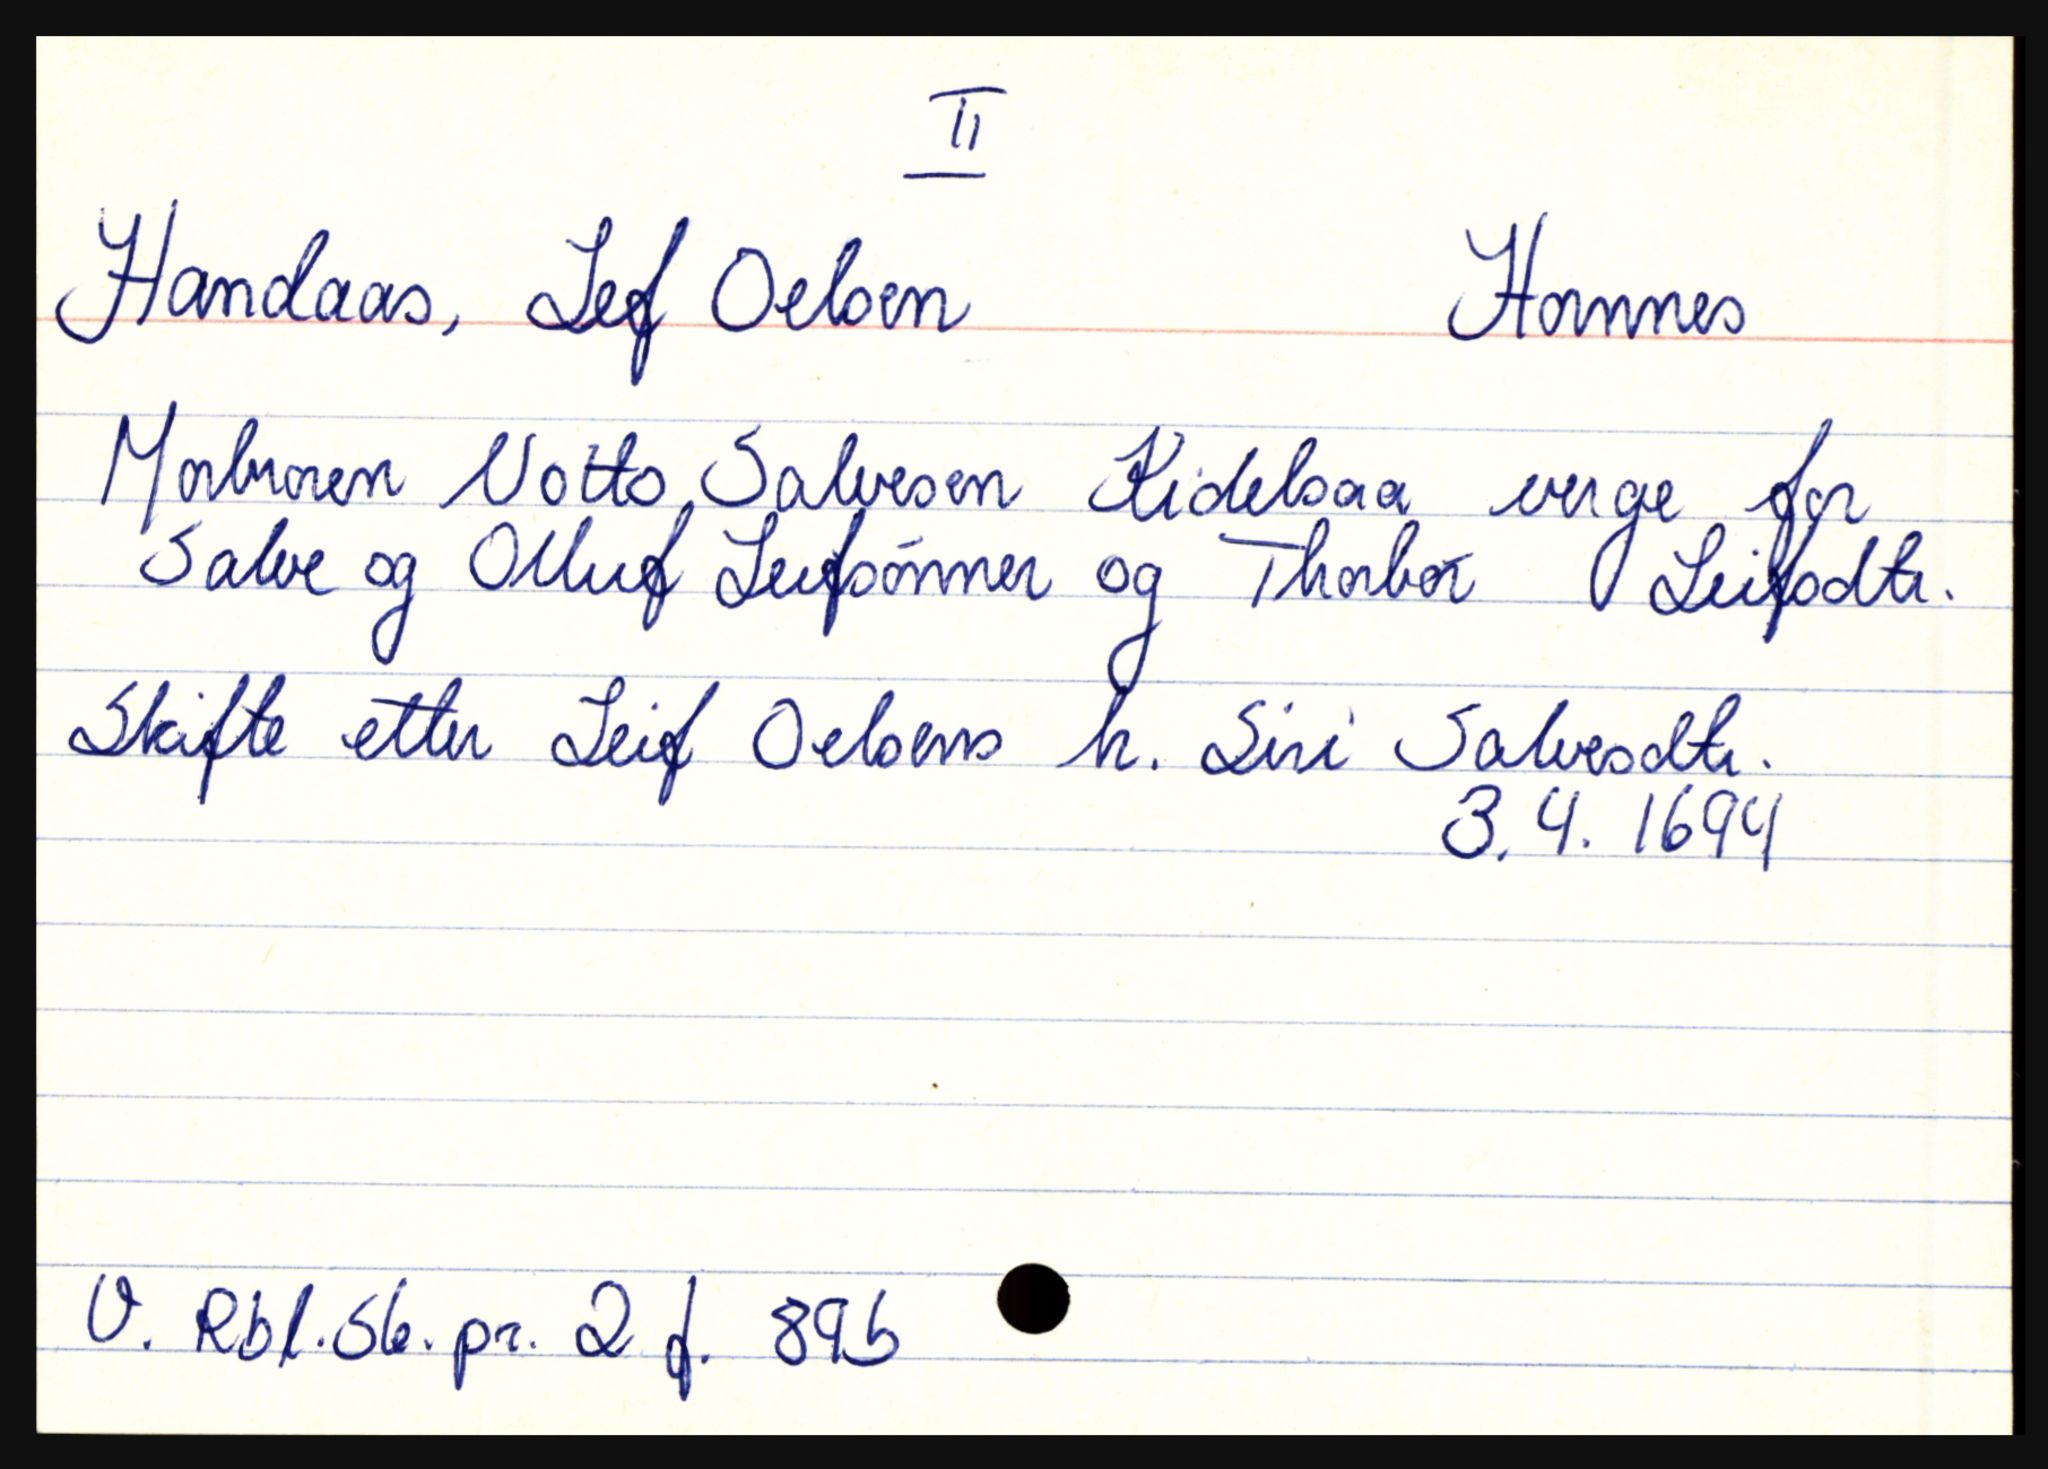 II
Handaas, Lef Oelsen Hornnes
Morbroren Notto Salvesen Kidelsaa verge for
Salve og Olluf Leifsønner og Thorbor Leifsdtr.
Skifte etter Leif Oelsens h. Siri Salvesdtr.
3.4. 1694
V. Rbl. Sk. pr. 2 f. 89b